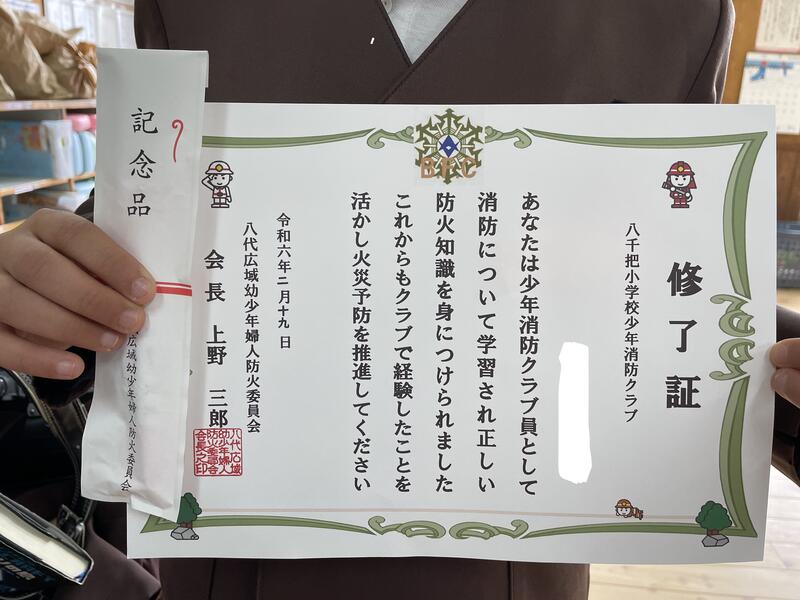 BFC
修了証
八千把小学校少年消防クラブ
あなたは少年消防クラブ員として
消防について学習され正しい
防火知識を身につけられました
これからもクラブで経験したことを
活かし火災予防を推進してください
令和六年二月十九日
八代広域幼少年婦人防火委員会
会長 上野 三郎
記念品
広域幼少年婦人防火委員会